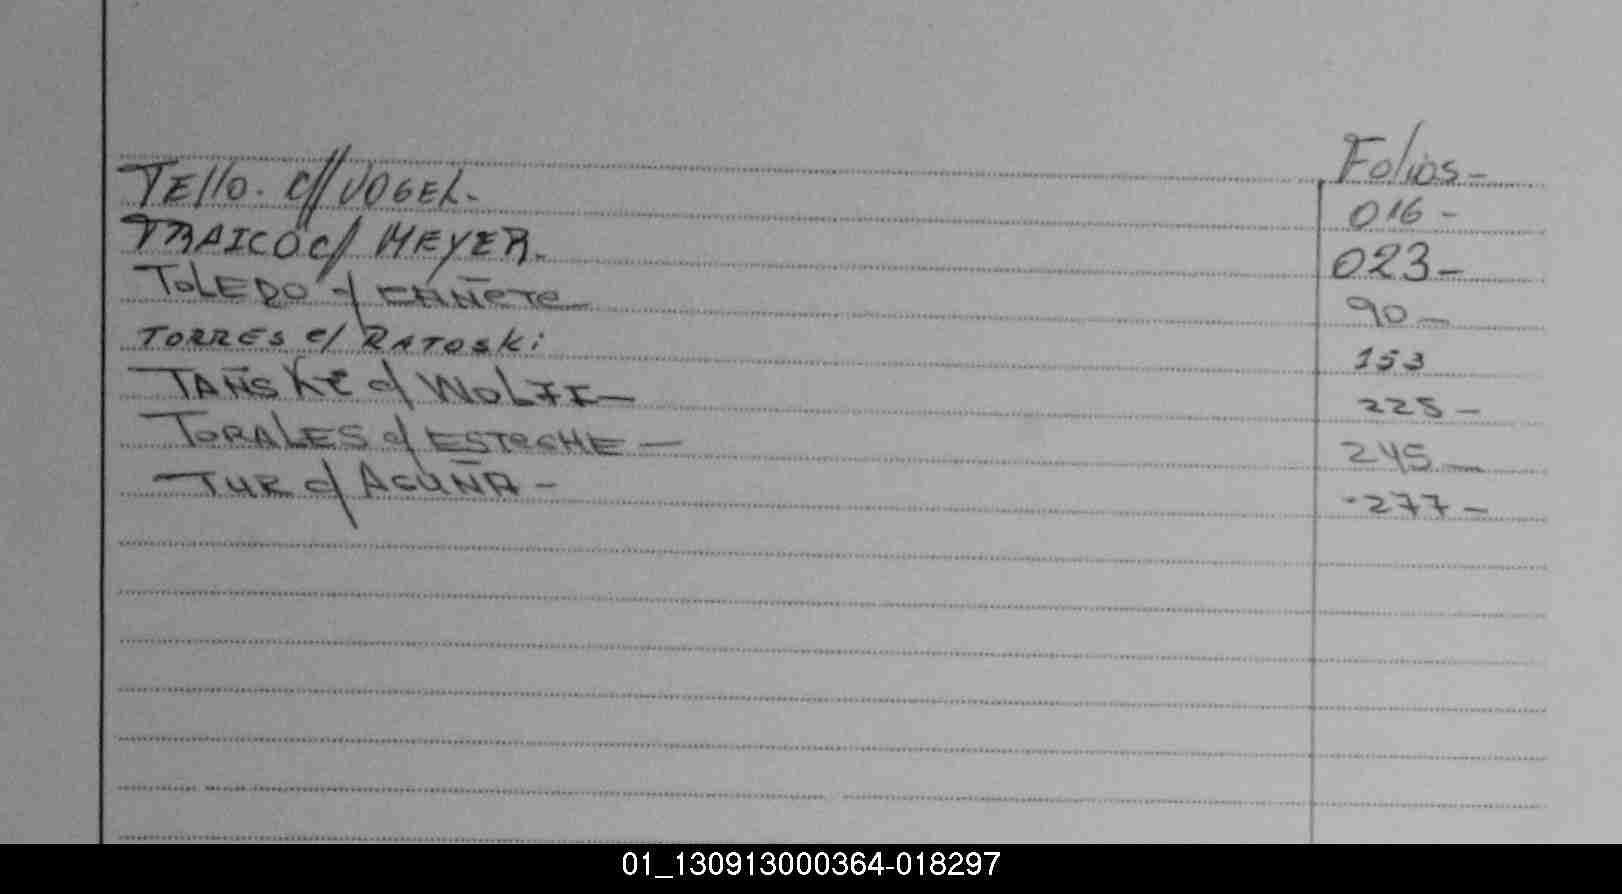 Folios-
Tello. c// VOGEL. 016-
TRAICO c/ MEYER. 023-
TOLEDO c/ CAÑETE 90-
TORRES c/ RATOSKi 153
TAÑSKE c/ WOLFE- 225-
TORALES c/ ESTECHE- 245-
TUR c/ ACUÑA- 277-
01_130913000364-018297